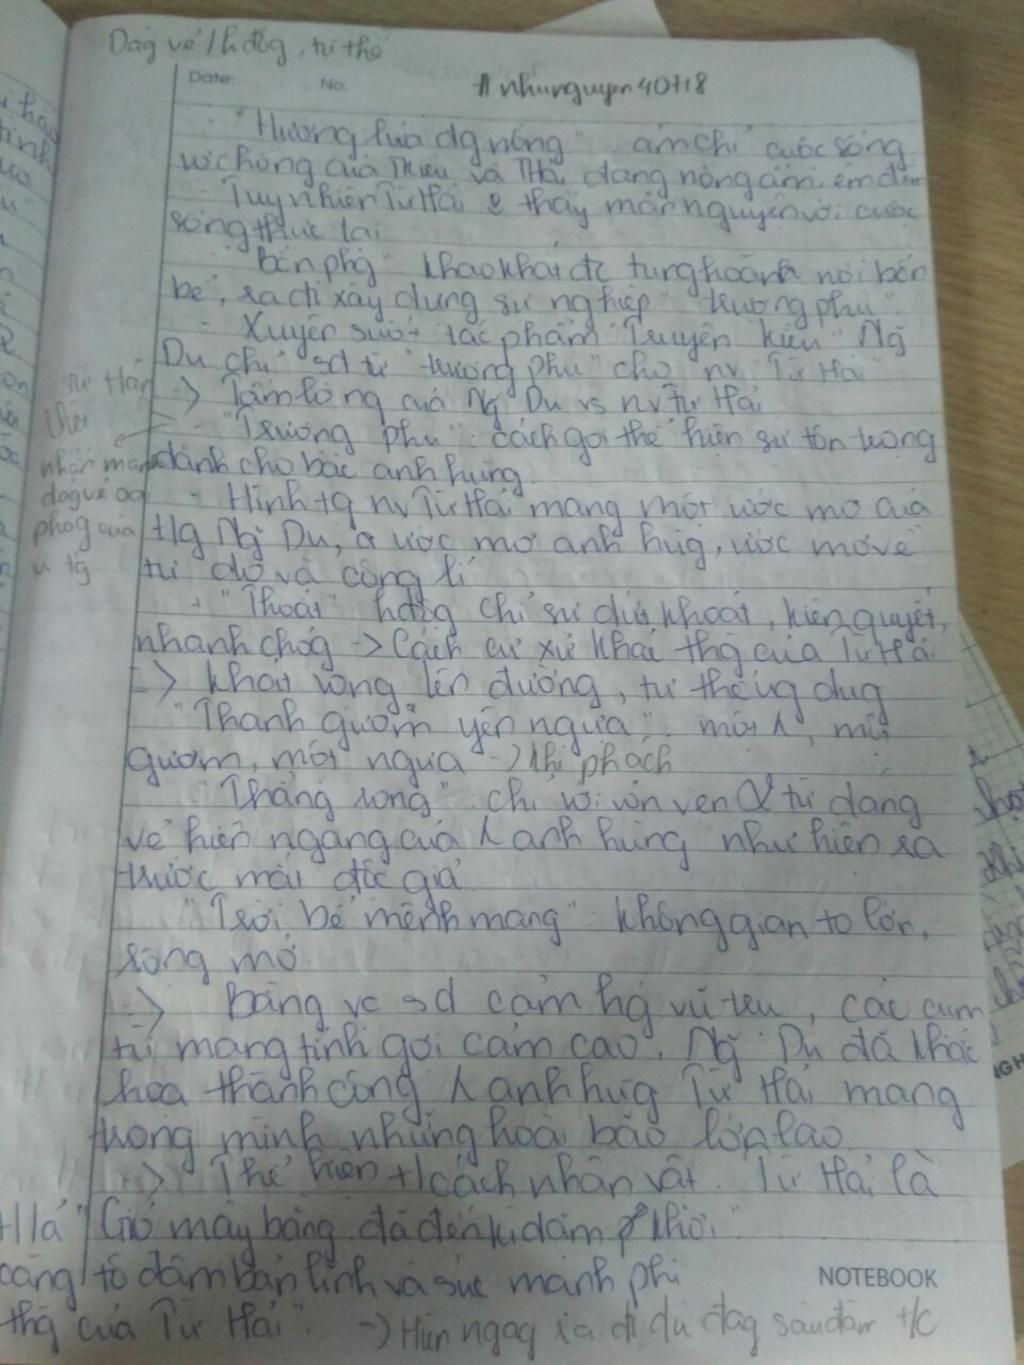 Dág vẻ / hđôg, tư thế
Date: No. # nhunguyen40718
- "Hương lửa đg nồng" ám chỉ cuộc sống
vợ chồng của Kiều và T Hải đang nồng ấm, êm đềm
- Tuy nhiên Từ Hải thấy mãn nguyện với cuộc
sống thực tại
"Bốn phg" khao khát đc tung hoành nơi bốn
bể, ra đi xây dựng sự nghiệp "trượng phu".
- Xuyên suốt tác phẩm "Truyện Kiều" Ng̃
Du chỉ sd từ "trượng phu" cho nv "Từ Hải"
-> Tấm lòng của Ng̃ Du vs nv Từ Hải
- "Trượng phu": cách gọi thể hiện sự tôn trọng
dành cho bậc anh hùng.
- Hình tg nv Từ Hải mang một ước mơ của
t/g Ng̃ Du, ước mơ anh hùg, ước mơ về
tự do và công lí
+ "Thoắt" hđôg chỉ sự dứt khoát, kiên quyết,
nhanh chóg -> Cách cư xử khác thg của Từ Hải
-> khát vọng lên đường, tư thế ug dug
"Thanh gươm yên ngựa": một, một
gươm, một ngựa -> khí phách
"Thẳng rong": chỉ vỏn vẹn từ dáng
vẻ hiên ngang của anh hùng như hiện ra
trước mắt độc giả
"Trời bể mênh mang": không gian to lớn,
rộng mở
-> Bằng vc sd cảm hg vũ trụ, các cụm
từ mang tính gợi cảm cao, Ng̃ Du đã khắc
họa thành công anh hùg Từ Hải mang
trong mình những hoài bão lớn lao
-> Thể hiện t/cách nhân vật. Từ Hải là
H/ả "Gió mây bằng đã đến kì dặm khơi"
càng tô đậm bản lĩnh và sức mạnh phi
thg của Từ Hải". -> Hiên ngag ra đi dù đag sâu đậm t/c
Từ Hải
nhấn mạnh
dág vẻ
phog của